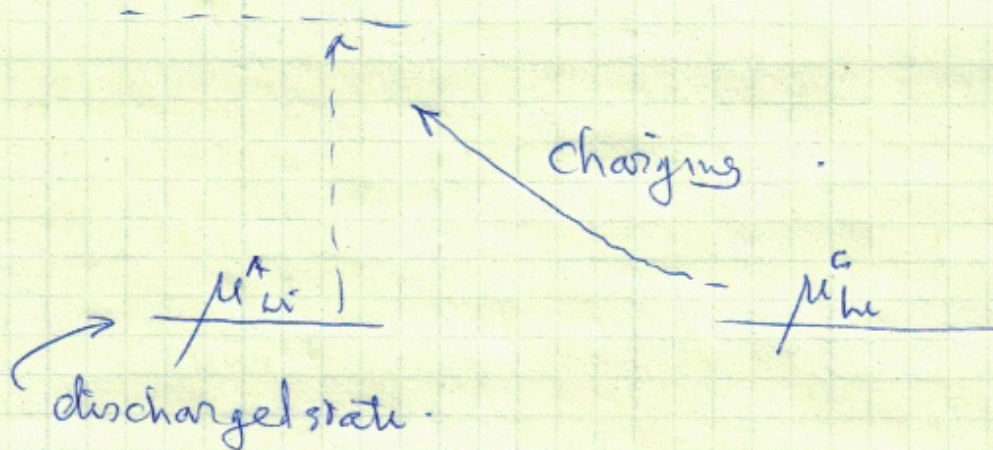 Charging
μ^A_Li
μ^C_Li
discharged state.